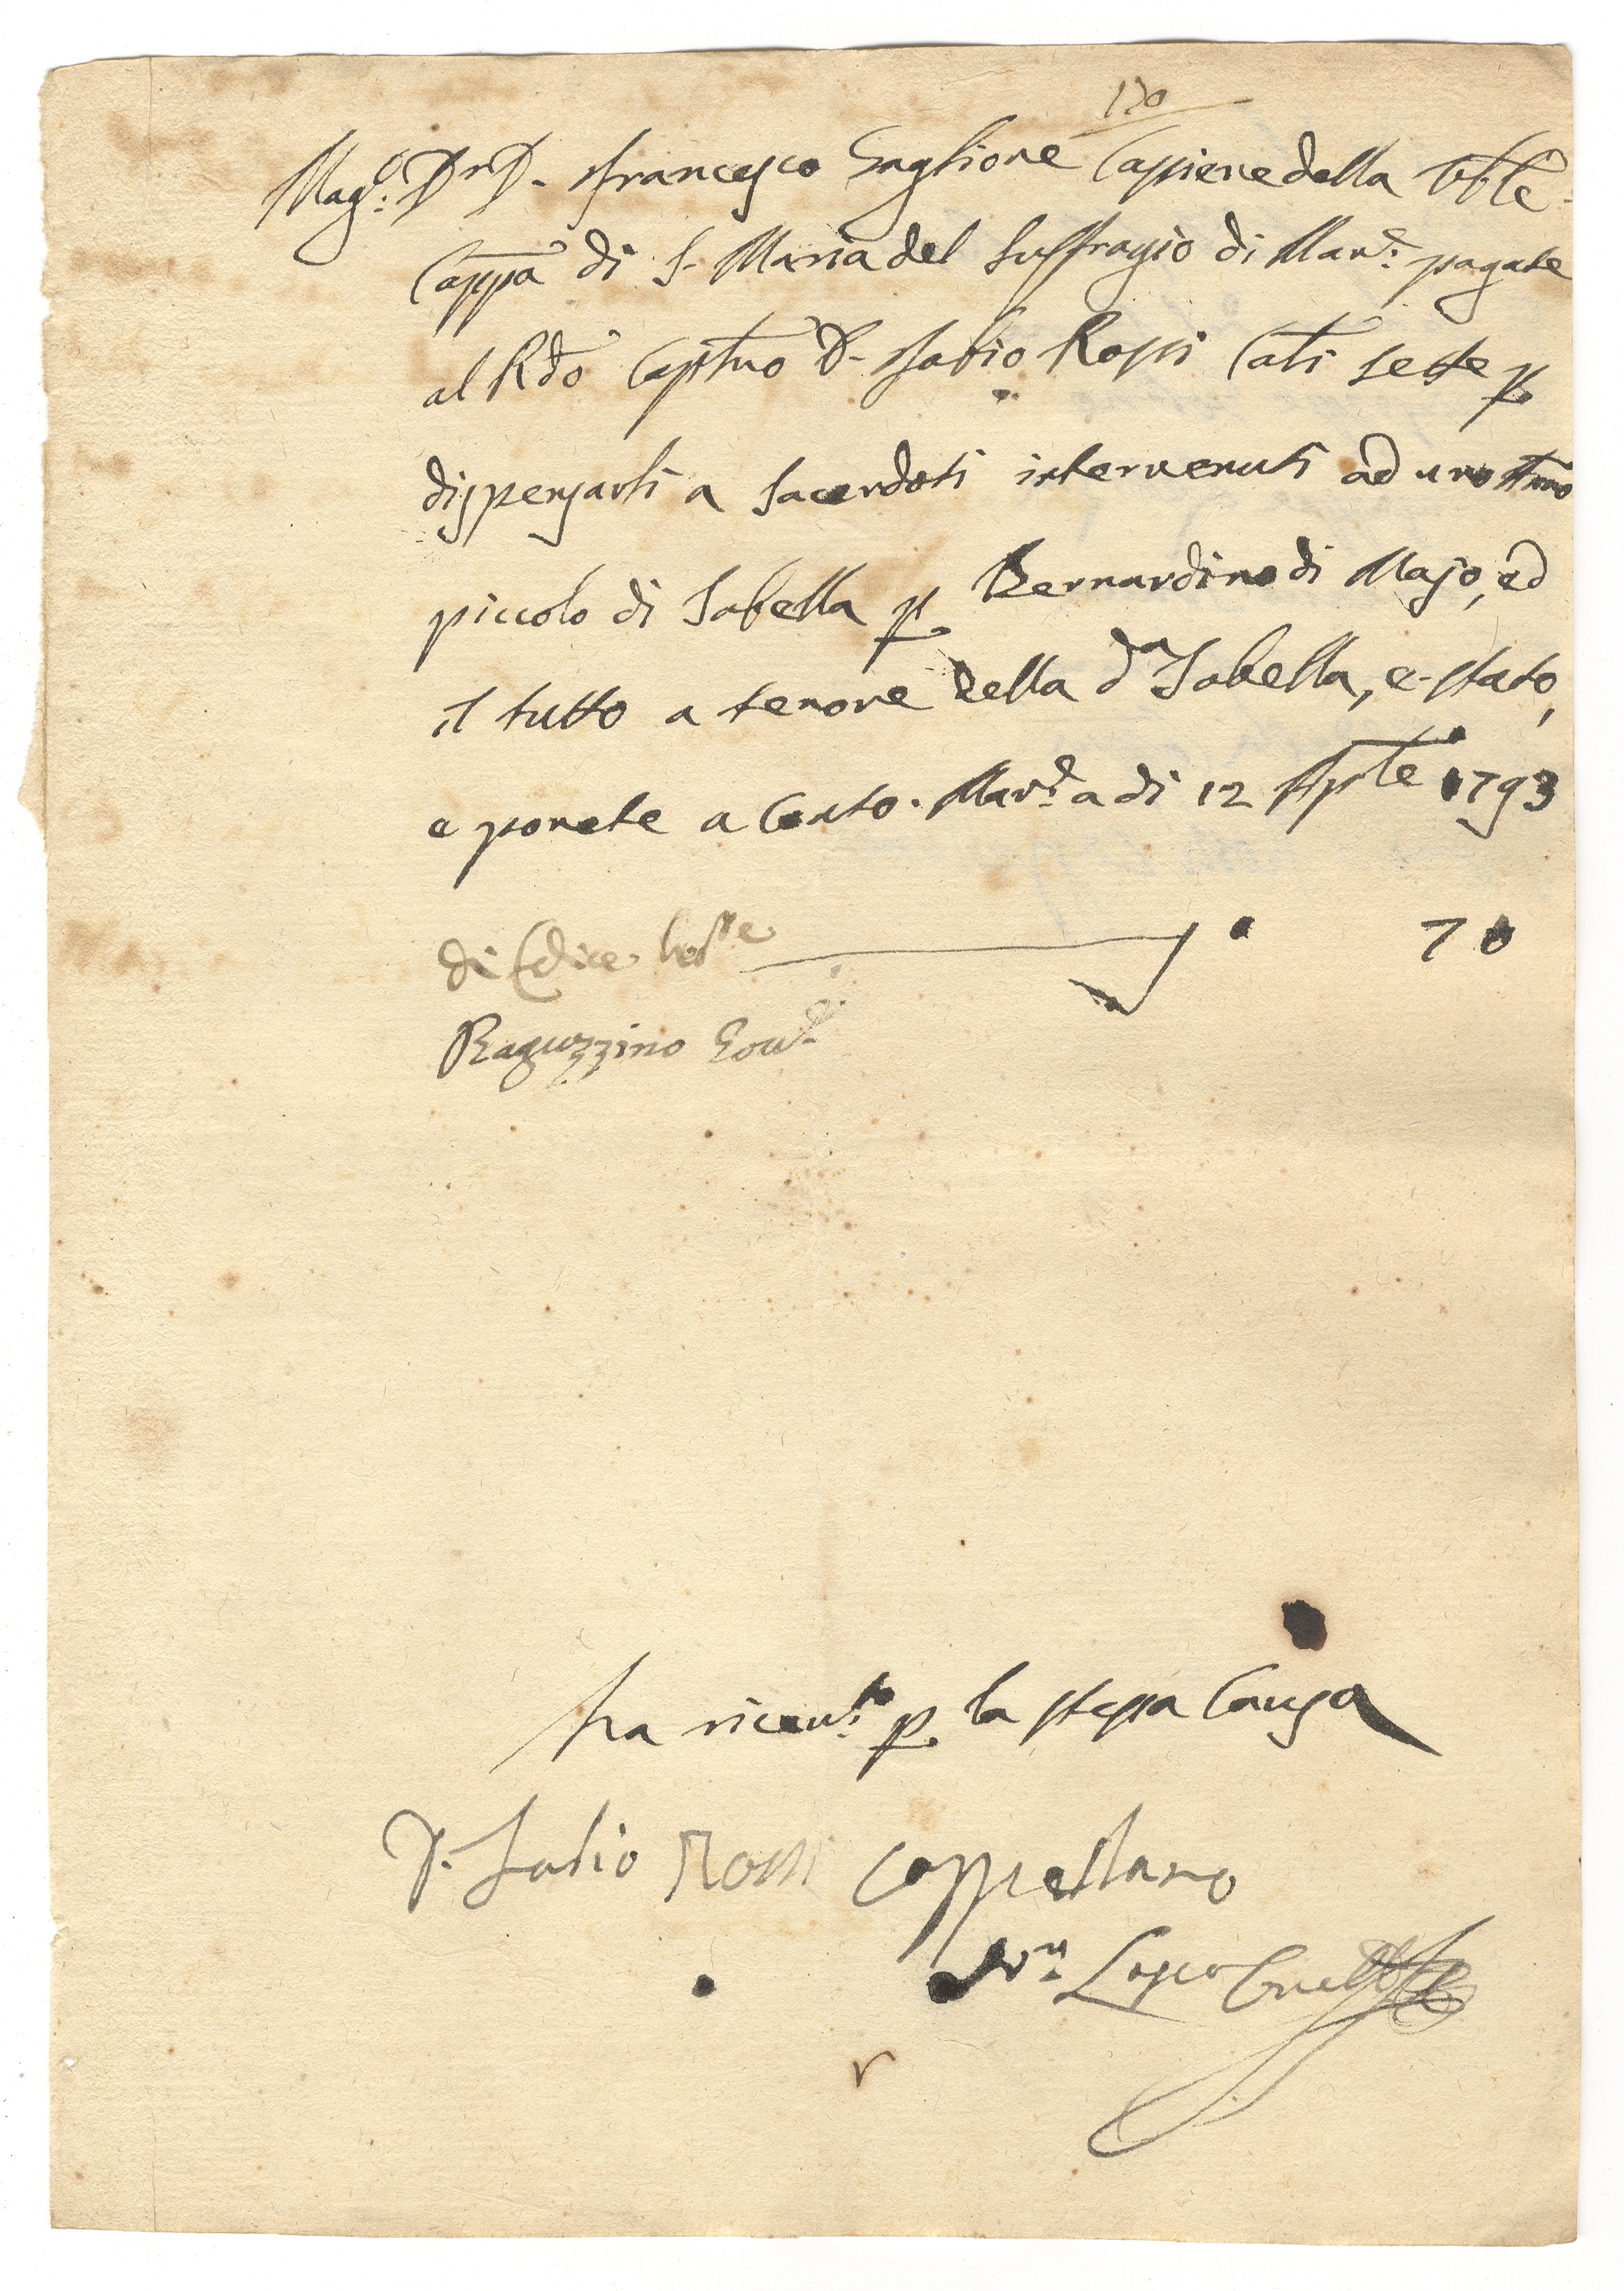 170
Mag.co Dr D. Francesco Guglione Cassiere della Vble
Cappa di S. Maria del Suffragio di Mar.e pagate
al Rdo Capptno D. Fabio Rossi Cati sette p
dispensarli a Sacerdoti intervenuti ad uno
piccolo di Sabella p Bernardino di Majo, ed
il tutto a tenore della da Sabella, e stato,
e ponete a Conto. Mar.e a di 12 Aple 1793
70
Raguzzino Gov.e
ha ricev.to p la stessa Causa
D. Fabio Rossi Cappellano